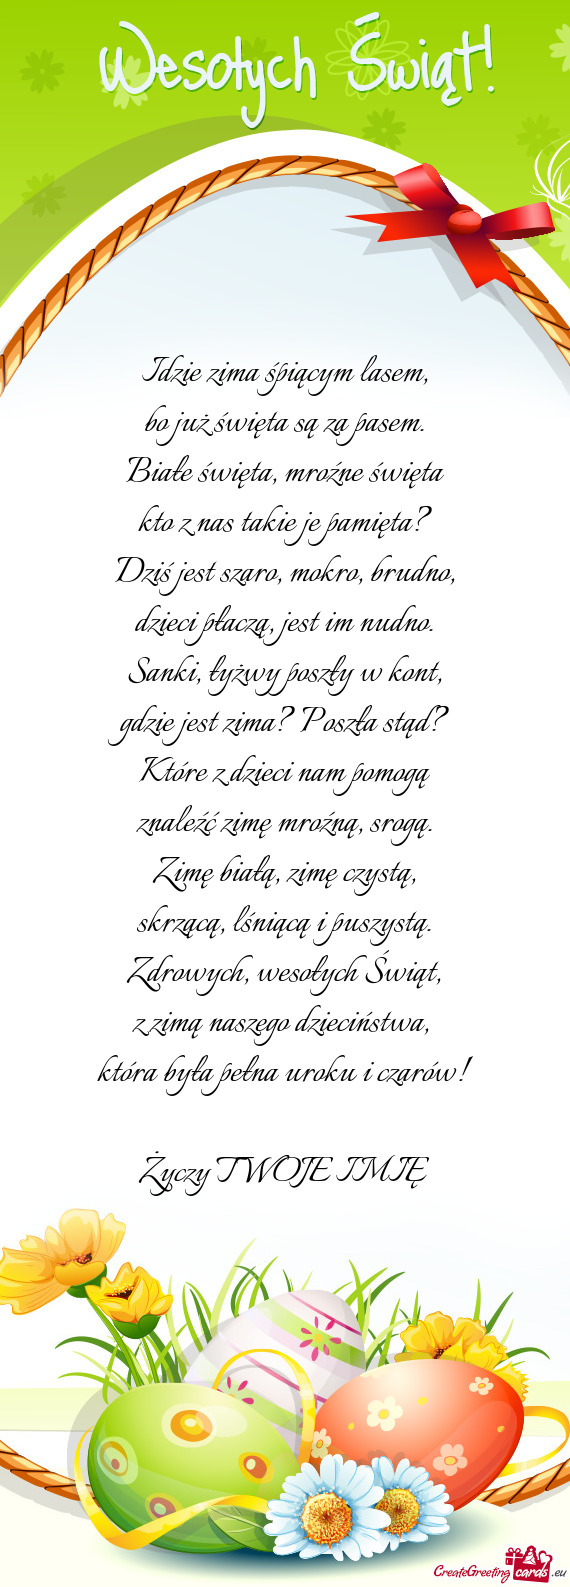 Wesołych Świąt!
Idzie zima śpiącym lasem,
bo już święta są za pasem.
Białe święta, mroźne święta
kto z nas takie je pamięta?
Dziś jest szaro, mokro, brudno,
dzieci płaczą, jest im nudno.
Sanki, łyżwy poszły w kont,
gdzie jest zima? Poszła stąd?
Które z dzieci nam pomogą
znaleźć zimę mroźną, srogą.
Zimę białą, zimę czystą,
skrzącą, lśniącą i puszystą.
Zdrowych, wesołych Świąt,
z zimą naszego dzieciństwa,
która była pełna uroku i czarów!
Życzy TWOJE IMIĘ
CreateGreetingcards.eu